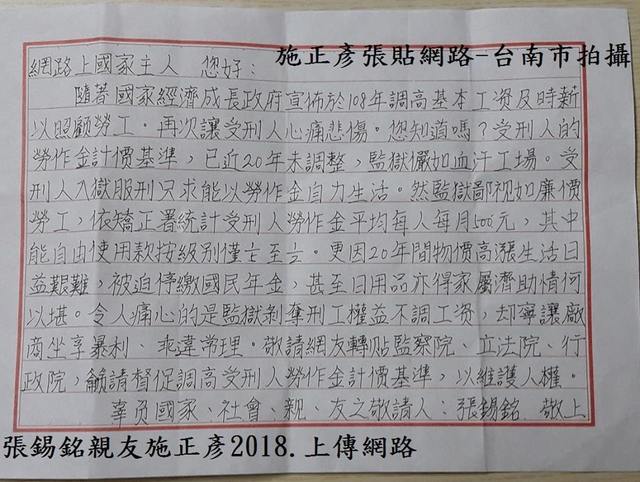 施正彥張貼網路-台南市拍攝
網路上國家主人 您好：
隨著國家經濟成長政府宣佈於108年調高基本工資及時薪
以照顧勞工。再次讓受刑人心痛悲傷。您知道嗎？受刑人的
勞作金計價基準，已近20年未調整，監獄儼如血汗工場。受
刑人入獄服刑只求能以勞作金自力生活。然監獄鄙視如廉價
勞工，依矯正署統計受刑人勞作金平均每人每月500元，其中
能自由使用款按級別僅 至 。更因20年間物價高漲生活日
益艱難，被迫停繳國民年金，甚至日用品亦得家屬濟助情何
以堪。令人痛心的是監獄剝奪刑工權益不調工資，却寧讓廠
商坐享暴利、乖違常理。敬請網友轉貼監察院、立法院、行
政院，籲請督促調高受刑人勞作金計價基準，以維護人權。
辜負國家、社會、親、友之敬請人：張錫銘 敬上
張錫銘親友施正彥2018.上傳網路